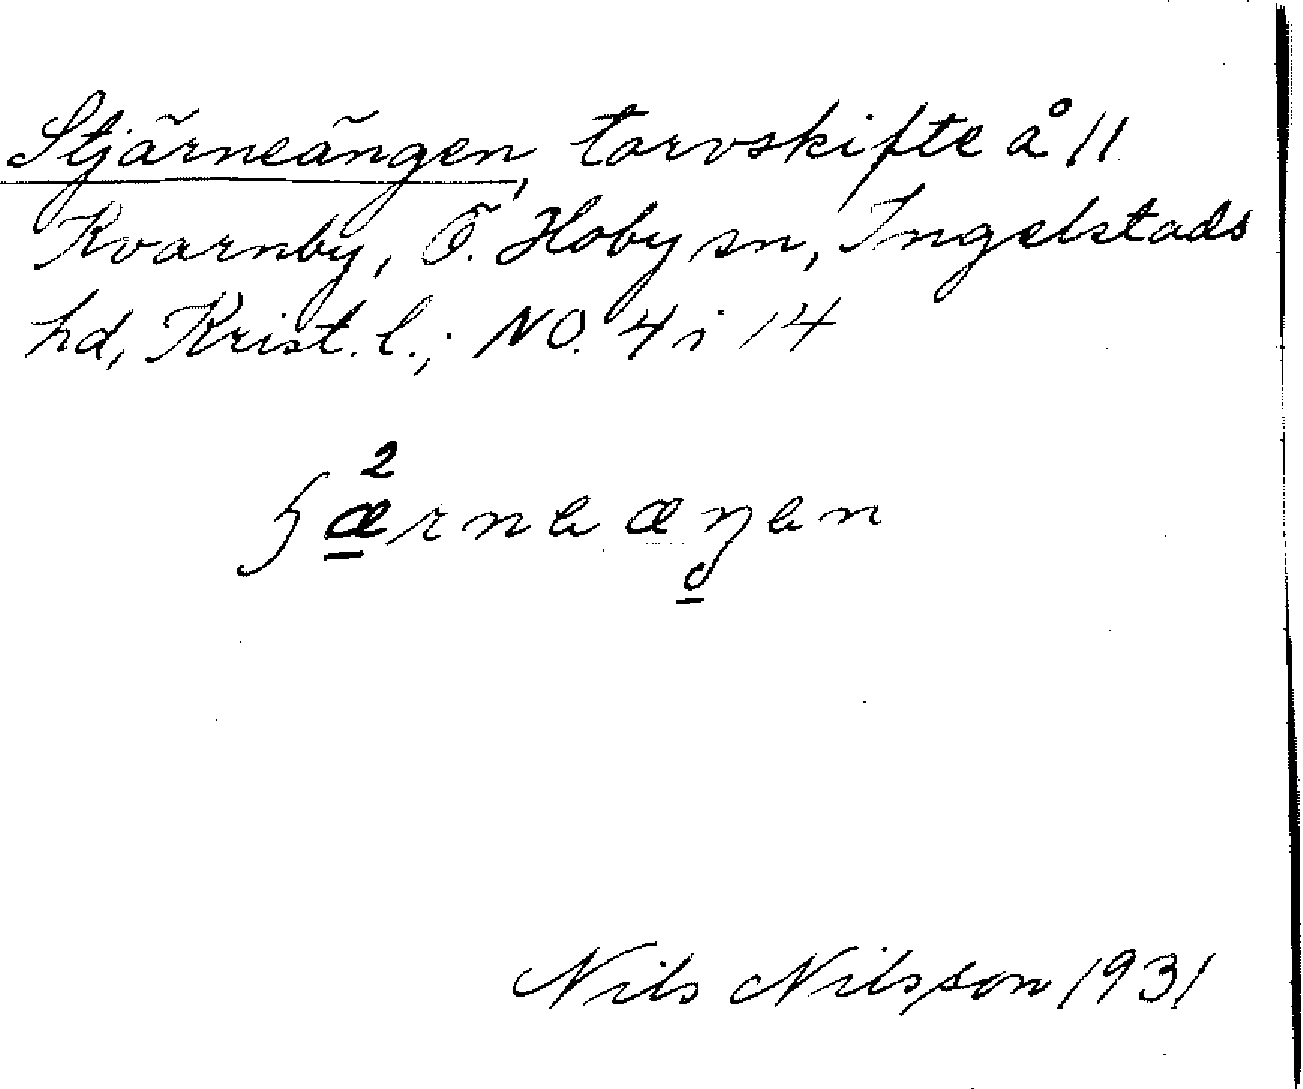 Stjärneängen, torvskifte å 11
Kvarnby, Ö. Hoby sn, Ingelstads
hd, Krist. l.; NO. 4 i 14
2
Nils Nilsson 1931